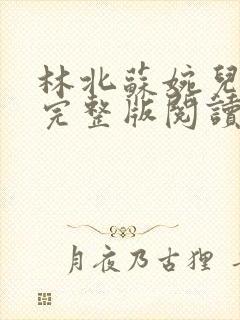 林北蘇婉兒
完整版閱讀
月夜乃古狸